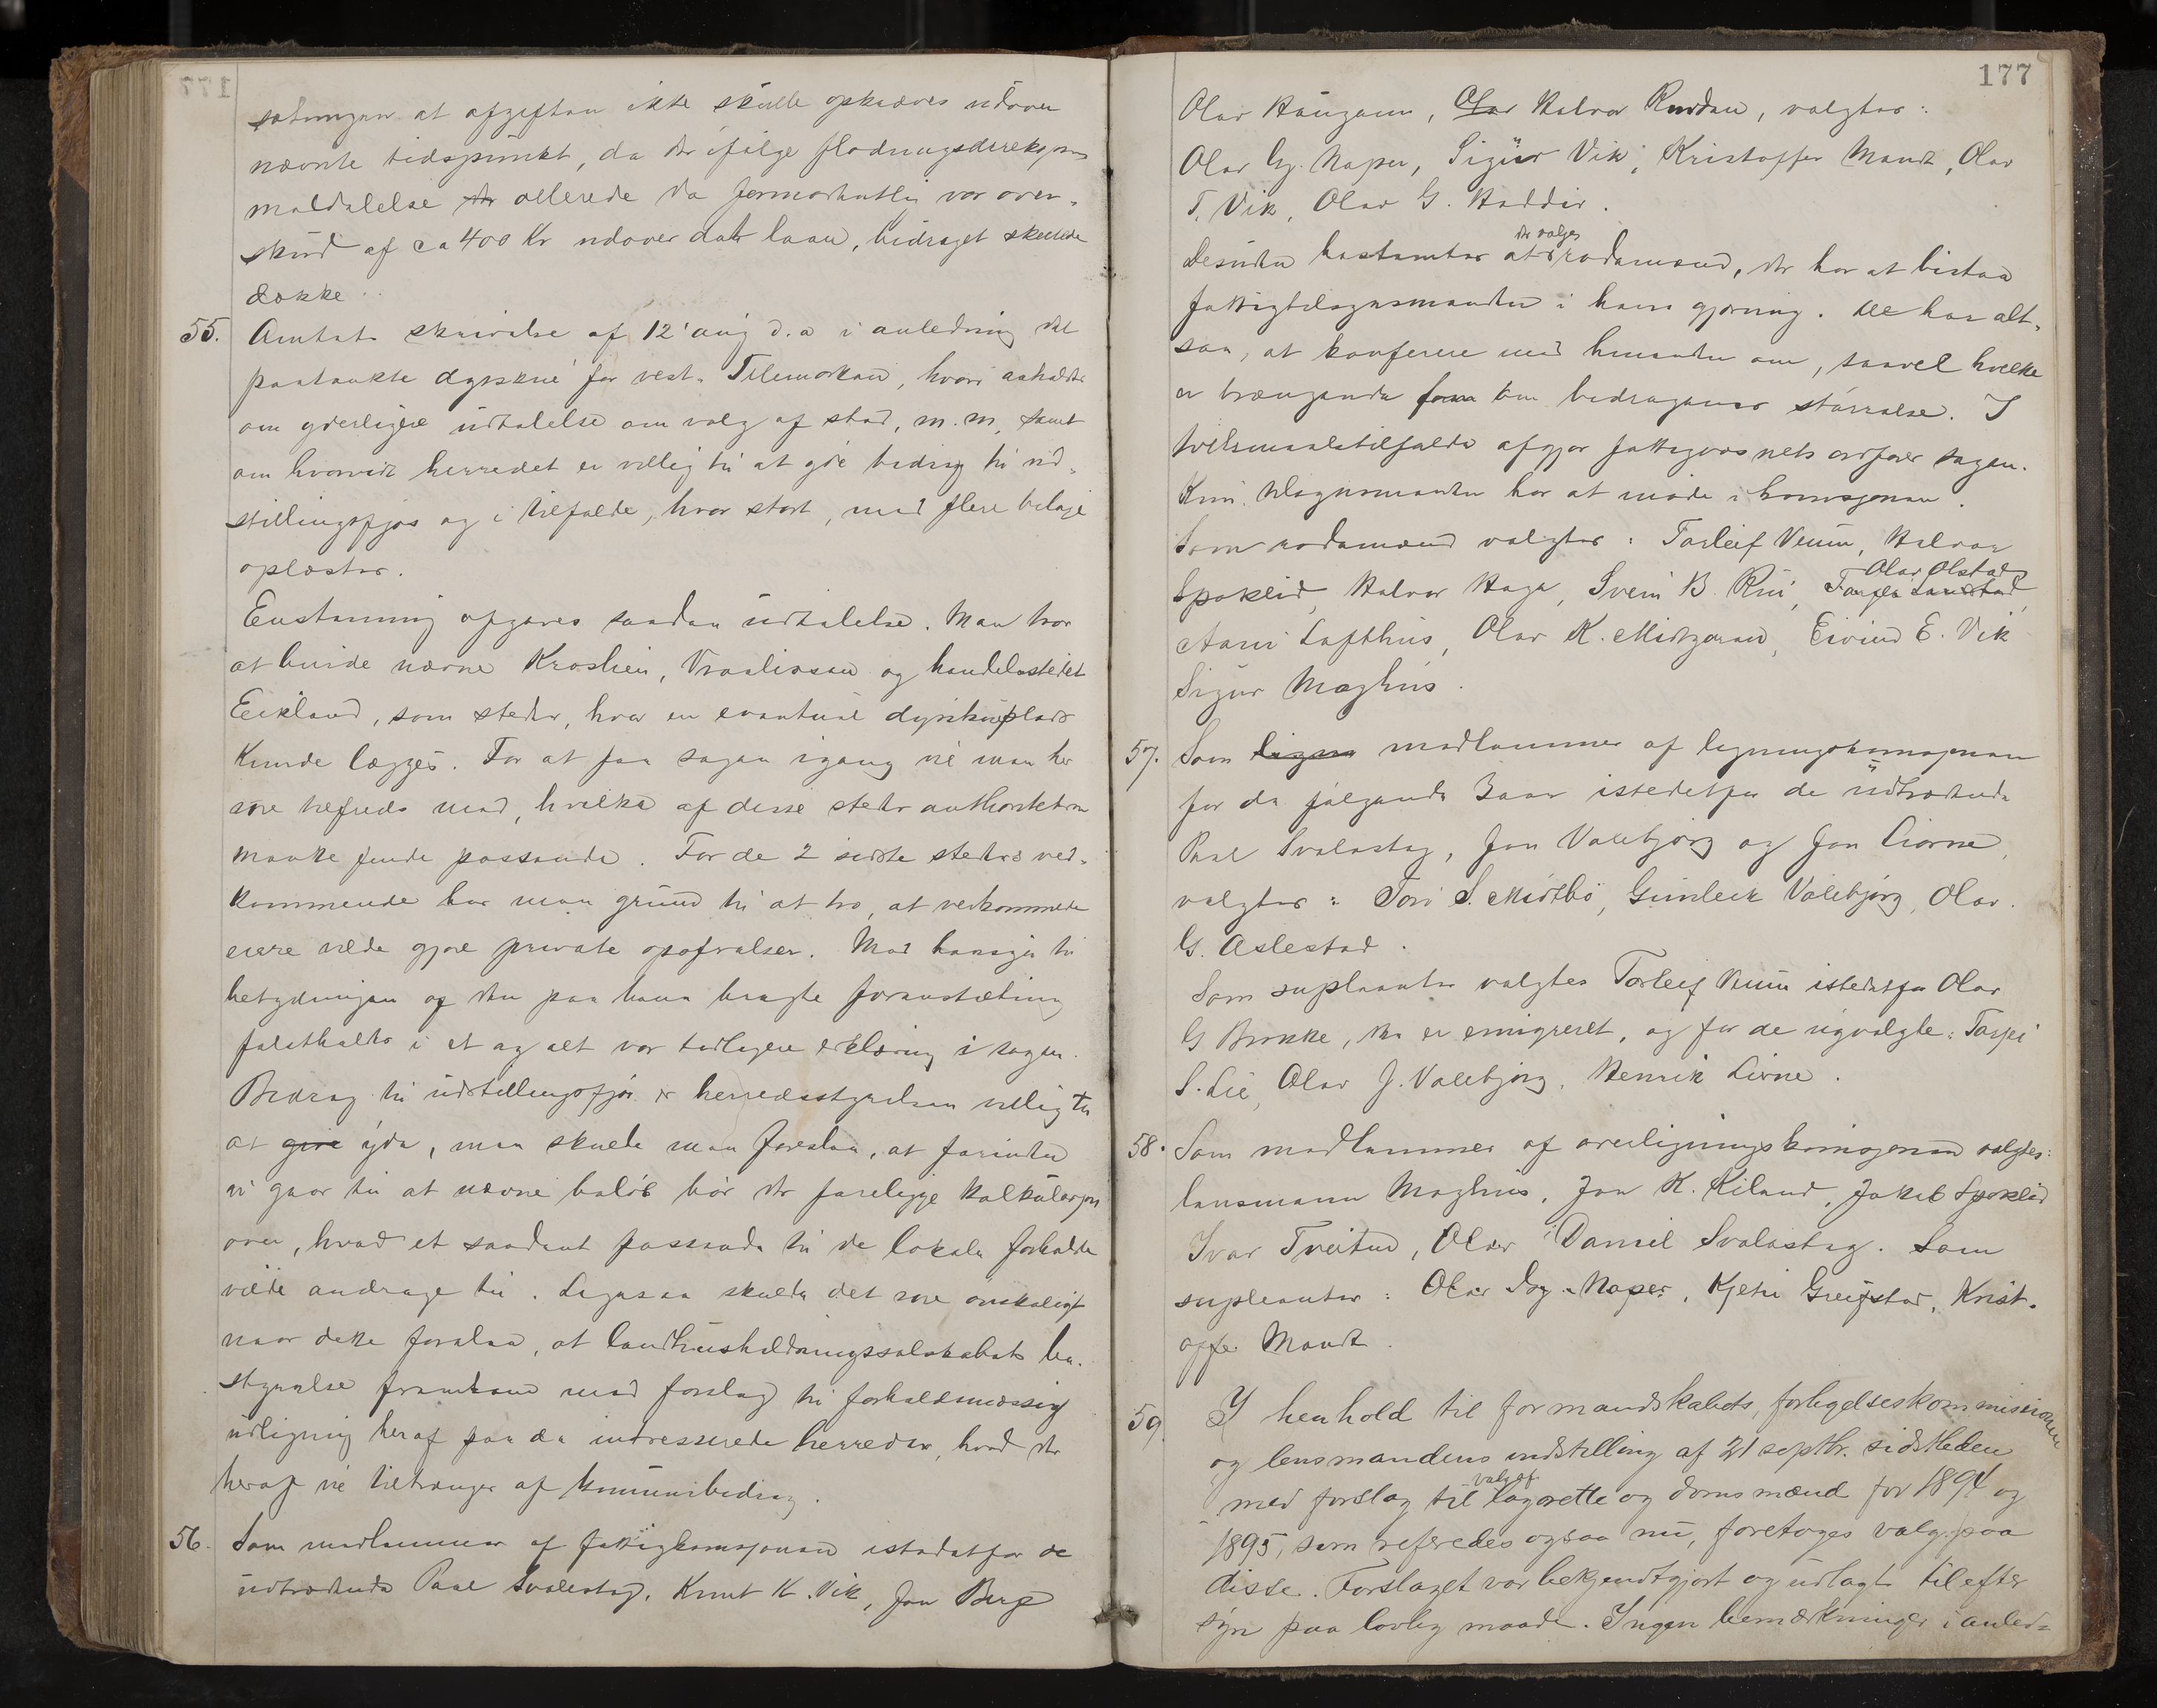 sætningen at afgiften ikke skulde opkræves udover
nævnte tidspunkt, da der ifølge flødningsdireksjons
meddelelse der allerede da formodentlig var over-
skud af ca 400 Kr udover det laan, bidraget skulde
dække.
55. Amtets skrivelse af 12' aug d.a i anledning det
paatænkte dyrskue for vest. Telemarken, hvori anholdes
om yderligere udtalelse om valg af sted, m.m, samt
om hvorvidt herredet er villig til at give bidrag til ud-
stillingsfjøs og i tilfælde, hvor stort, med flere bilage
oplæstes.
Enstemmig afgaves saadan udtalelse. Man tror
at burde nævne Kroshei, Vraaliosen og handelsstedet
Eikland, som steder, hvor en eventuel dyrskueplads
kunde lægges. For at faa sagen igang vil man her
være tilfreds med, hvilke af disse steder autoriteterne
maatte finde passende. For de 2 sidste steders ved-
kommende har man grund til at tro, at vedkommende
eiere vilde gjøre private opofrelser. Med hensyn til
betydningen og den paa bane bragte foranstaltning
fastholdes i et og alt vor tidligere erklæring i sagen.
Bidrag til udstillingsfjøs er herredsstyrelsen villig til
at give yde, men skulde man foreslaa, at forinden
vi gaar til at nævne beløb bør der foreligge kalkulasjon
over, hvad et saadant passende til de lokale forholde
vilde andrage til. Ligesaa skulde det være ønskeligt
naar dette forelaa, at landhusholdningsselskabets be-
styrelse fremkom med forslag til forholdsmæssig
udligning heraf paa de interesserede herreder, hvad der
heraf vil tiltrænges af kommunebidrag.
56. Som medlemmer af fattigkomisjonen istedetfor de
udtrædende Paal Svalestog, Knut K. Vik, Jon Berge
177
Olav Haugann, Olav Halvor Rundan, valgtes:
Olav Gj. Naper, Sigur Vik, Kristoffer Mandt, Olav
T. Vik, Olav G. Haddir.
der valges
Desuden bestemtes at rodemænd, der har at bistaa
fattigtilsynsmanden i hans gjerning. De har alt-
saa, at konferere med hinanden om, saavel hvilke
er trængende som om bidragenes størrelse. I
tvilsmaalstilfælde afgjør fattigvæsnets ordfører sagen.
Kun tilsynsmanden har at møde i komisjonen.
Som rodemænd valgtes: Torleif Veum, Halvor
Olav Olstad
Spokelid, Halvor Haga, Svein B. Rui, Tarjei Sandstad,
Aani Lofthus, Olav K. Midtgarden, Eivind E. Vik
Sigur Moghus.
57. Som ligne medlemmer af ligningskomisjonen
for de følgende 3 aar istedetfor de udtrædende
Paal Svalastog, Jon Valebjørg og Jon Livrne,
valgtes: Tov S. Midtbø, Gunleik Valebjørg, Olav.
G. Aslestad.
Som supleanter valgtes Torleif Veum istedetfor Olav
G Brokke, der er emigreret, og for de nyvalgte: Tarjei
S. Lie, Olav J. Valebjørg, Henrik Livrne.
58. Som medlemmer af overligningskomisjonen valgtes:
lensmann Moghus, Jon K. Kiland, Jakob Spokelid
Ivar Tveiten, Olav Daniel Svalastog. Som
supleanter: Olav Gj. Naper, Kjetil Greivstad, Krist-
offer Mandt.
59. I henhold til formandskabets, forligelseskommissionen
og lensmandens indstilling af 21 septbr. sidstleden
valg af
med forslag til lagrette og domsmænd for 1894 og
1895, som referedes ogsaa nu, foretoges valg paa
disse. Forslaget var bekjendtgjort og udlagt til efter
syn paa lovlig maade. Ingen bemærkninger i anled=